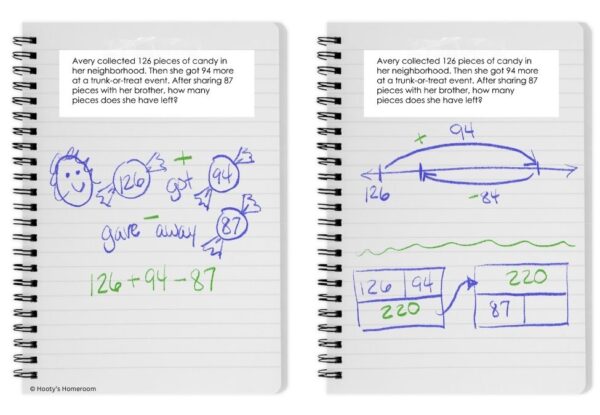 Avery collected 126 pieces of candy in
her neighborhood. Then she got 94 more
at a trunk-or-treat event. After sharing 87
pieces with her brother, how many
pieces does she have left?
126 + got 94
gave - away 87
126 + 94 - 87
© Hooty's Homeroom
Avery collected 126 pieces of candy in
her neighborhood. Then she got 94 more
at a trunk-or-treat event. After sharing 87
pieces with her brother, how many
pieces does she have left?
+ 94
126
-84
126 94
220
220
87